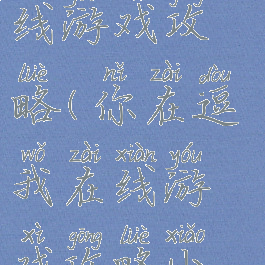 线游戏攻
lüè nǐ zài dòu
略(你在逗
wǒ zài xiàn yóu
我在线游
xì gōng lüè xiǎo
戏攻略小